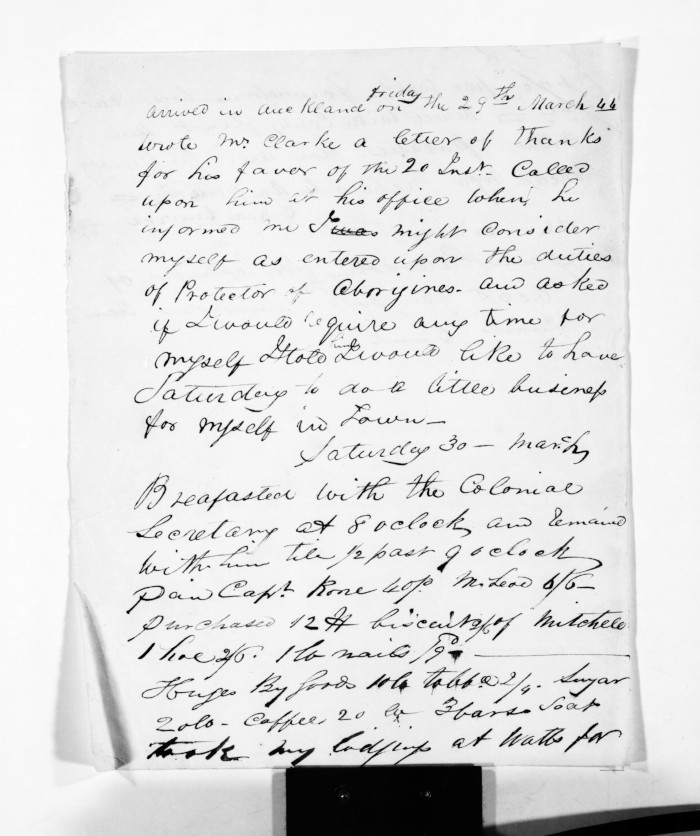 arrived in Auckland on friday the 29th March 44
wrote Mr. Clarke a letter of thanks
for his favor of the 20 Inst. Called
upon him at his office when he
informed me I was might consider
myself as entered upon the duties
of Protector of Aborigines. and asked
if I would require any time for
myself I told him I would like to have
Saturday to do a little business
for myself in Town —
Saturday 30 — March
Breafasted with the Colonial
Secretary at 8 oclock, and remained
with him till 1/2 past 9 oclock
Paid Capt. 40/. McLeod 6/6 —
purchased 12 lb biscuit 2/6 of Mitchell
1 hoe 2/6. 1 lb nails /9d —
By goods 10 lb tobbco 2/4. Sugar
20lb — Coffee 20 lb 3 bars Soap
took my lodgings at Watts for